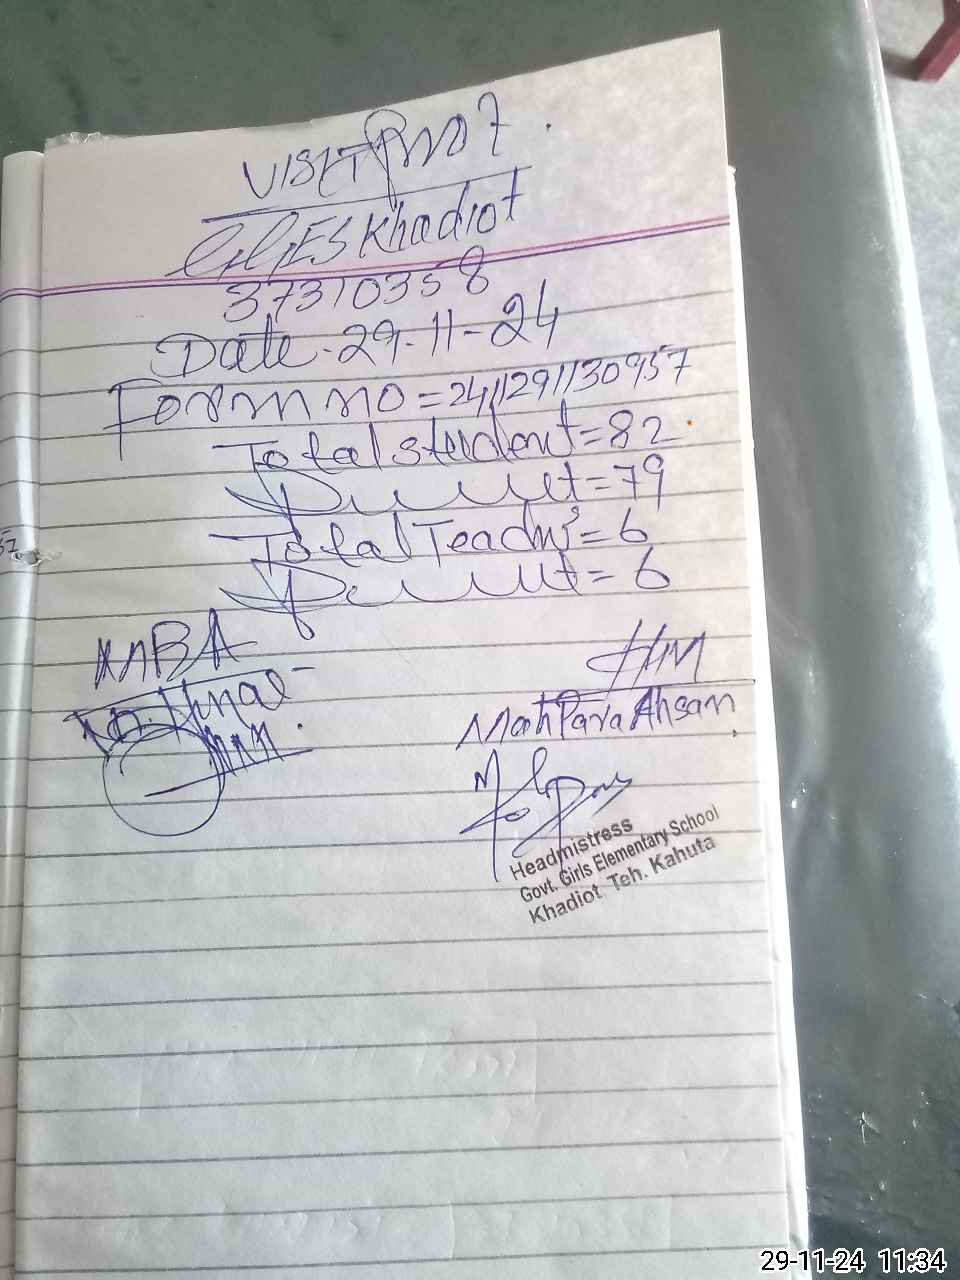 VISIT Pro no 7.
GGES Khadiot
37310358
Date. 29-11-24
Form no = 241129130957
Total student = 82
Present = 79
Total Teachers = 6
Present = 6
HM
Mah Para Ahsan
Headmistress
Govt. Girls Elementary School
Khadiot Teh. Kahuta
57
29-11-24 11:34